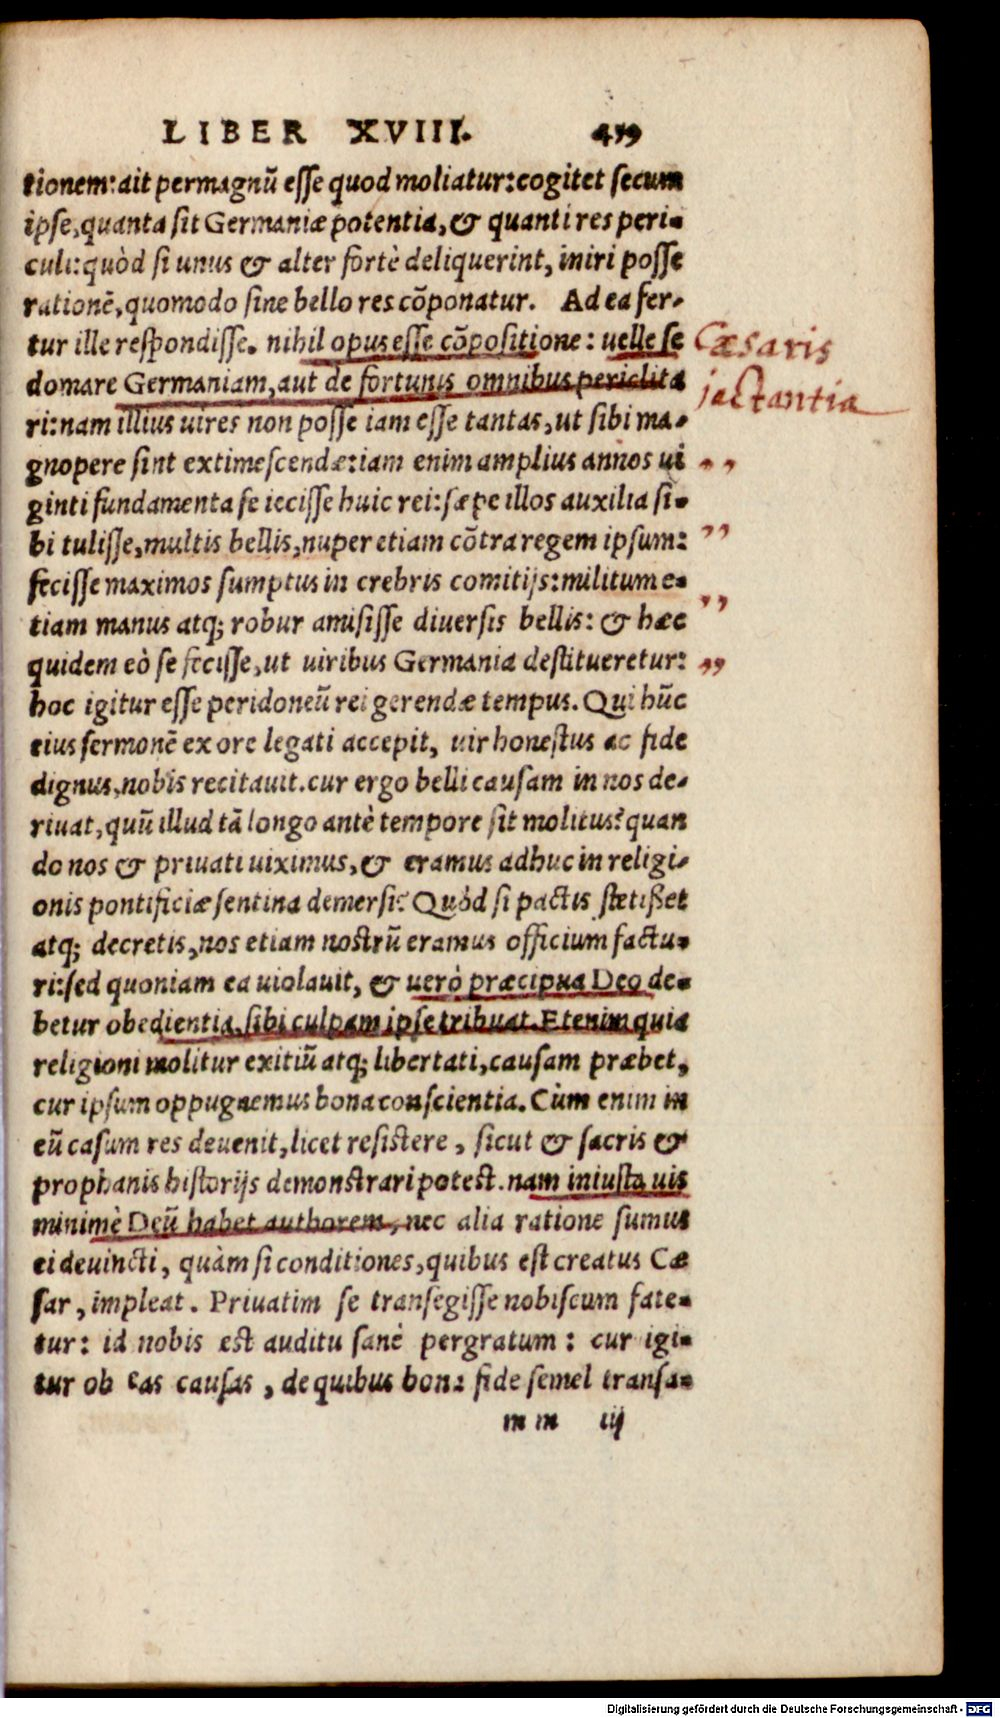 LIBER XVIII. 459
tionem: ait permagnũ esse quod moliatur: cogitet secum
ipse, quanta sit Germaniæ potentia, & quanti res peri-
culi: quòd si unus & alter fortè deliquerint, iniri posse
rationẽ, quomodo sine bello res cõponatur. Ad ea fer-
tur ille respondisse. nihil opus esse cõpositione: uelle se
Cæsaris
domare Germaniam, aut de fortunis omnibus periclita
jactantia
ri: nam illius uires non posse iam esse tantas, ut sibi ma-
gnopere sint extimescendæ: iam enim amplius annos ui
,,
ginti fundamenta se iecisse huic rei: sæpe illos auxilia si-
bi tulisse, multis bellis, nuper etiam cõtra regem ipsum:
,,
fecisse maximos sumptus in crebris comitijs: militum e-
,,
tiam manus atq; robur amisisse diuersis bellis: & hæc
quidem eò se fecisse, ut uiribus Germania destitueretur:
,,
hoc igitur esse peridoneũ rei gerendæ tempus. Qui hũc
eius sermonẽ ex ore legati accepit, uir honestus ac fide
dignus, nobis recitauit. cur ergo belli causam in nos de-
riuat, quũ illud tã longo antè tempore sit molitus? quan
do nos & priuati uiximus, & eramus adhuc in religi-
onis pontificiæ sentina demersi? Quòd si pactis stetißet
atq; decretis, nos etiam nostrũ eramus officium factu-
ri: sed quoniam ea uiolauit, & uerò præcipua Deo de-
betur obedientia, sibi culpam ipse tribuat. Etenim quia
religioni molitur exitiũ atq; libertati, causam præbet,
cur ipsum oppugnemus bona conscientia. Cùm enim in
eũ casum res deuenit, licet resistere, sicut & sacris &
prophanis historijs demonstrari potest. nam iniusta uis
minimè Deũ habet authorem, nec alia ratione sumus
ei deuincti, quàm si conditiones, quibus est creatus Cæ
sar, impleat. Priuatim se transegisse nobiscum fate-
tur: id nobis est auditu sanè pergratum: cur igi-
tur ob eas causas, de quibus bona fide semel transa-
m m iij
Digitalisierung gefördert durch die Deutsche Forschungsgemeinschaft - DFG